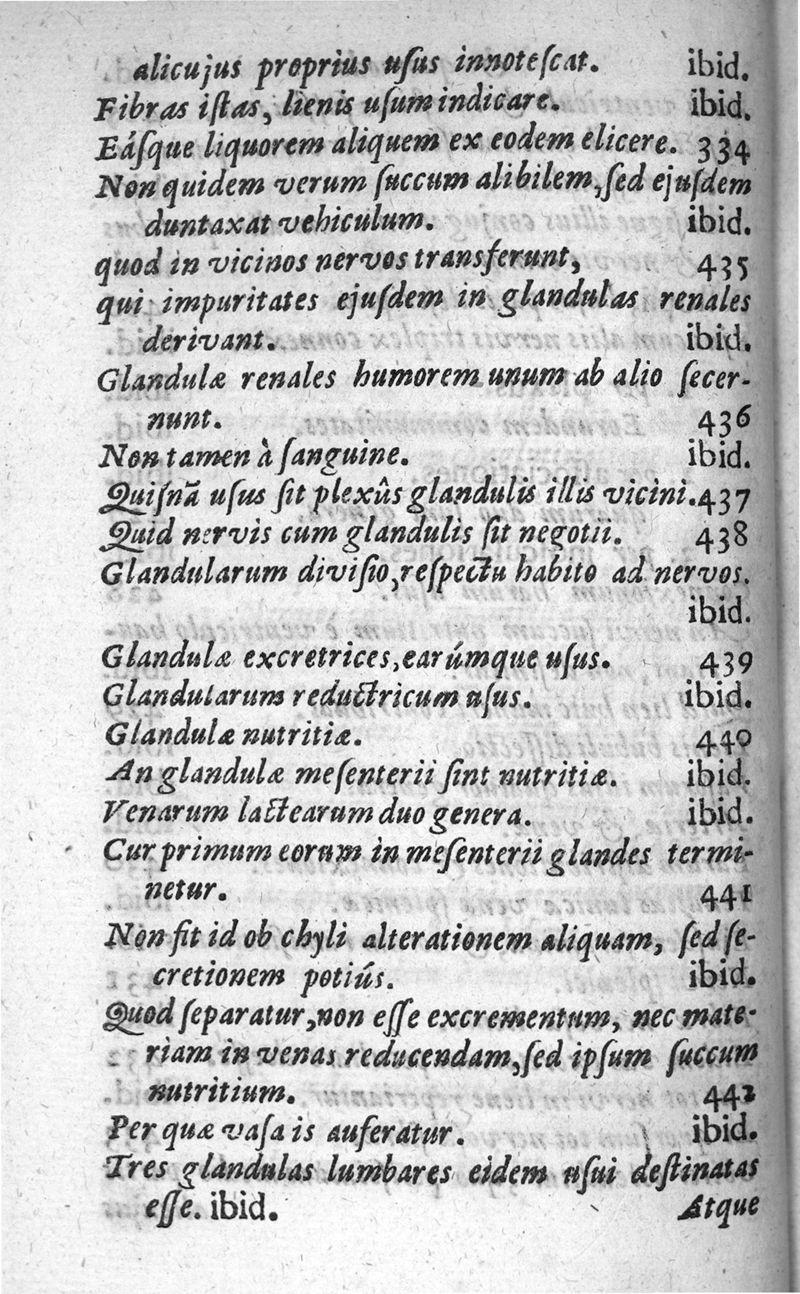 alicujus proprius uſus innoteſcat. ibid.
Fibras iſtas, lienis uſum indicare. ibid.
Eáſque liquorem aliquem ex eodem elicere. 334
Non quidem verum ſuccum alibilem, ſed ejuſdem
duntaxat vehiculum. ibid.
quod in vicinos nervos transferunt, 435
qui impuritates ejuſdem in glandulas renales
derivant. ibid.
Glandulæ renales humorem unum ab alio ſecer-
nunt. 436
Non tamen à ſanguine. ibid.
Quiſnā uſus ſit plexûs glandulis illis vicini. 437
Quid nervis cum glandulis ſit negotii. 438
Glandularum diviſio, reſpectu habito ad nervos.
ibid.
Glandulæ excretrices, earúmque uſus. 439
Glandularum reductricum uſus. ibid.
Glandulæ nutritiæ. 440
An glandulæ meſenterii ſint nutritiæ. ibid.
Venarum lactearum duo genera. ibid.
Cur primum eorum in meſenterii glandes termi-
netur. 441
Non fit id ob chyli alterationem aliquam, ſed ſe-
cretionem potiús. ibid.
Quod ſeparatur, non eſſe excrementum, nec mate-
riam in venas reducendam, ſed ipſum ſuccum
nutritium. 442
Per quæ vaſa is auferatur. ibid.
Tres glandulas lumbares eidem uſui deſtinatas
eſſe. ibid. Atque